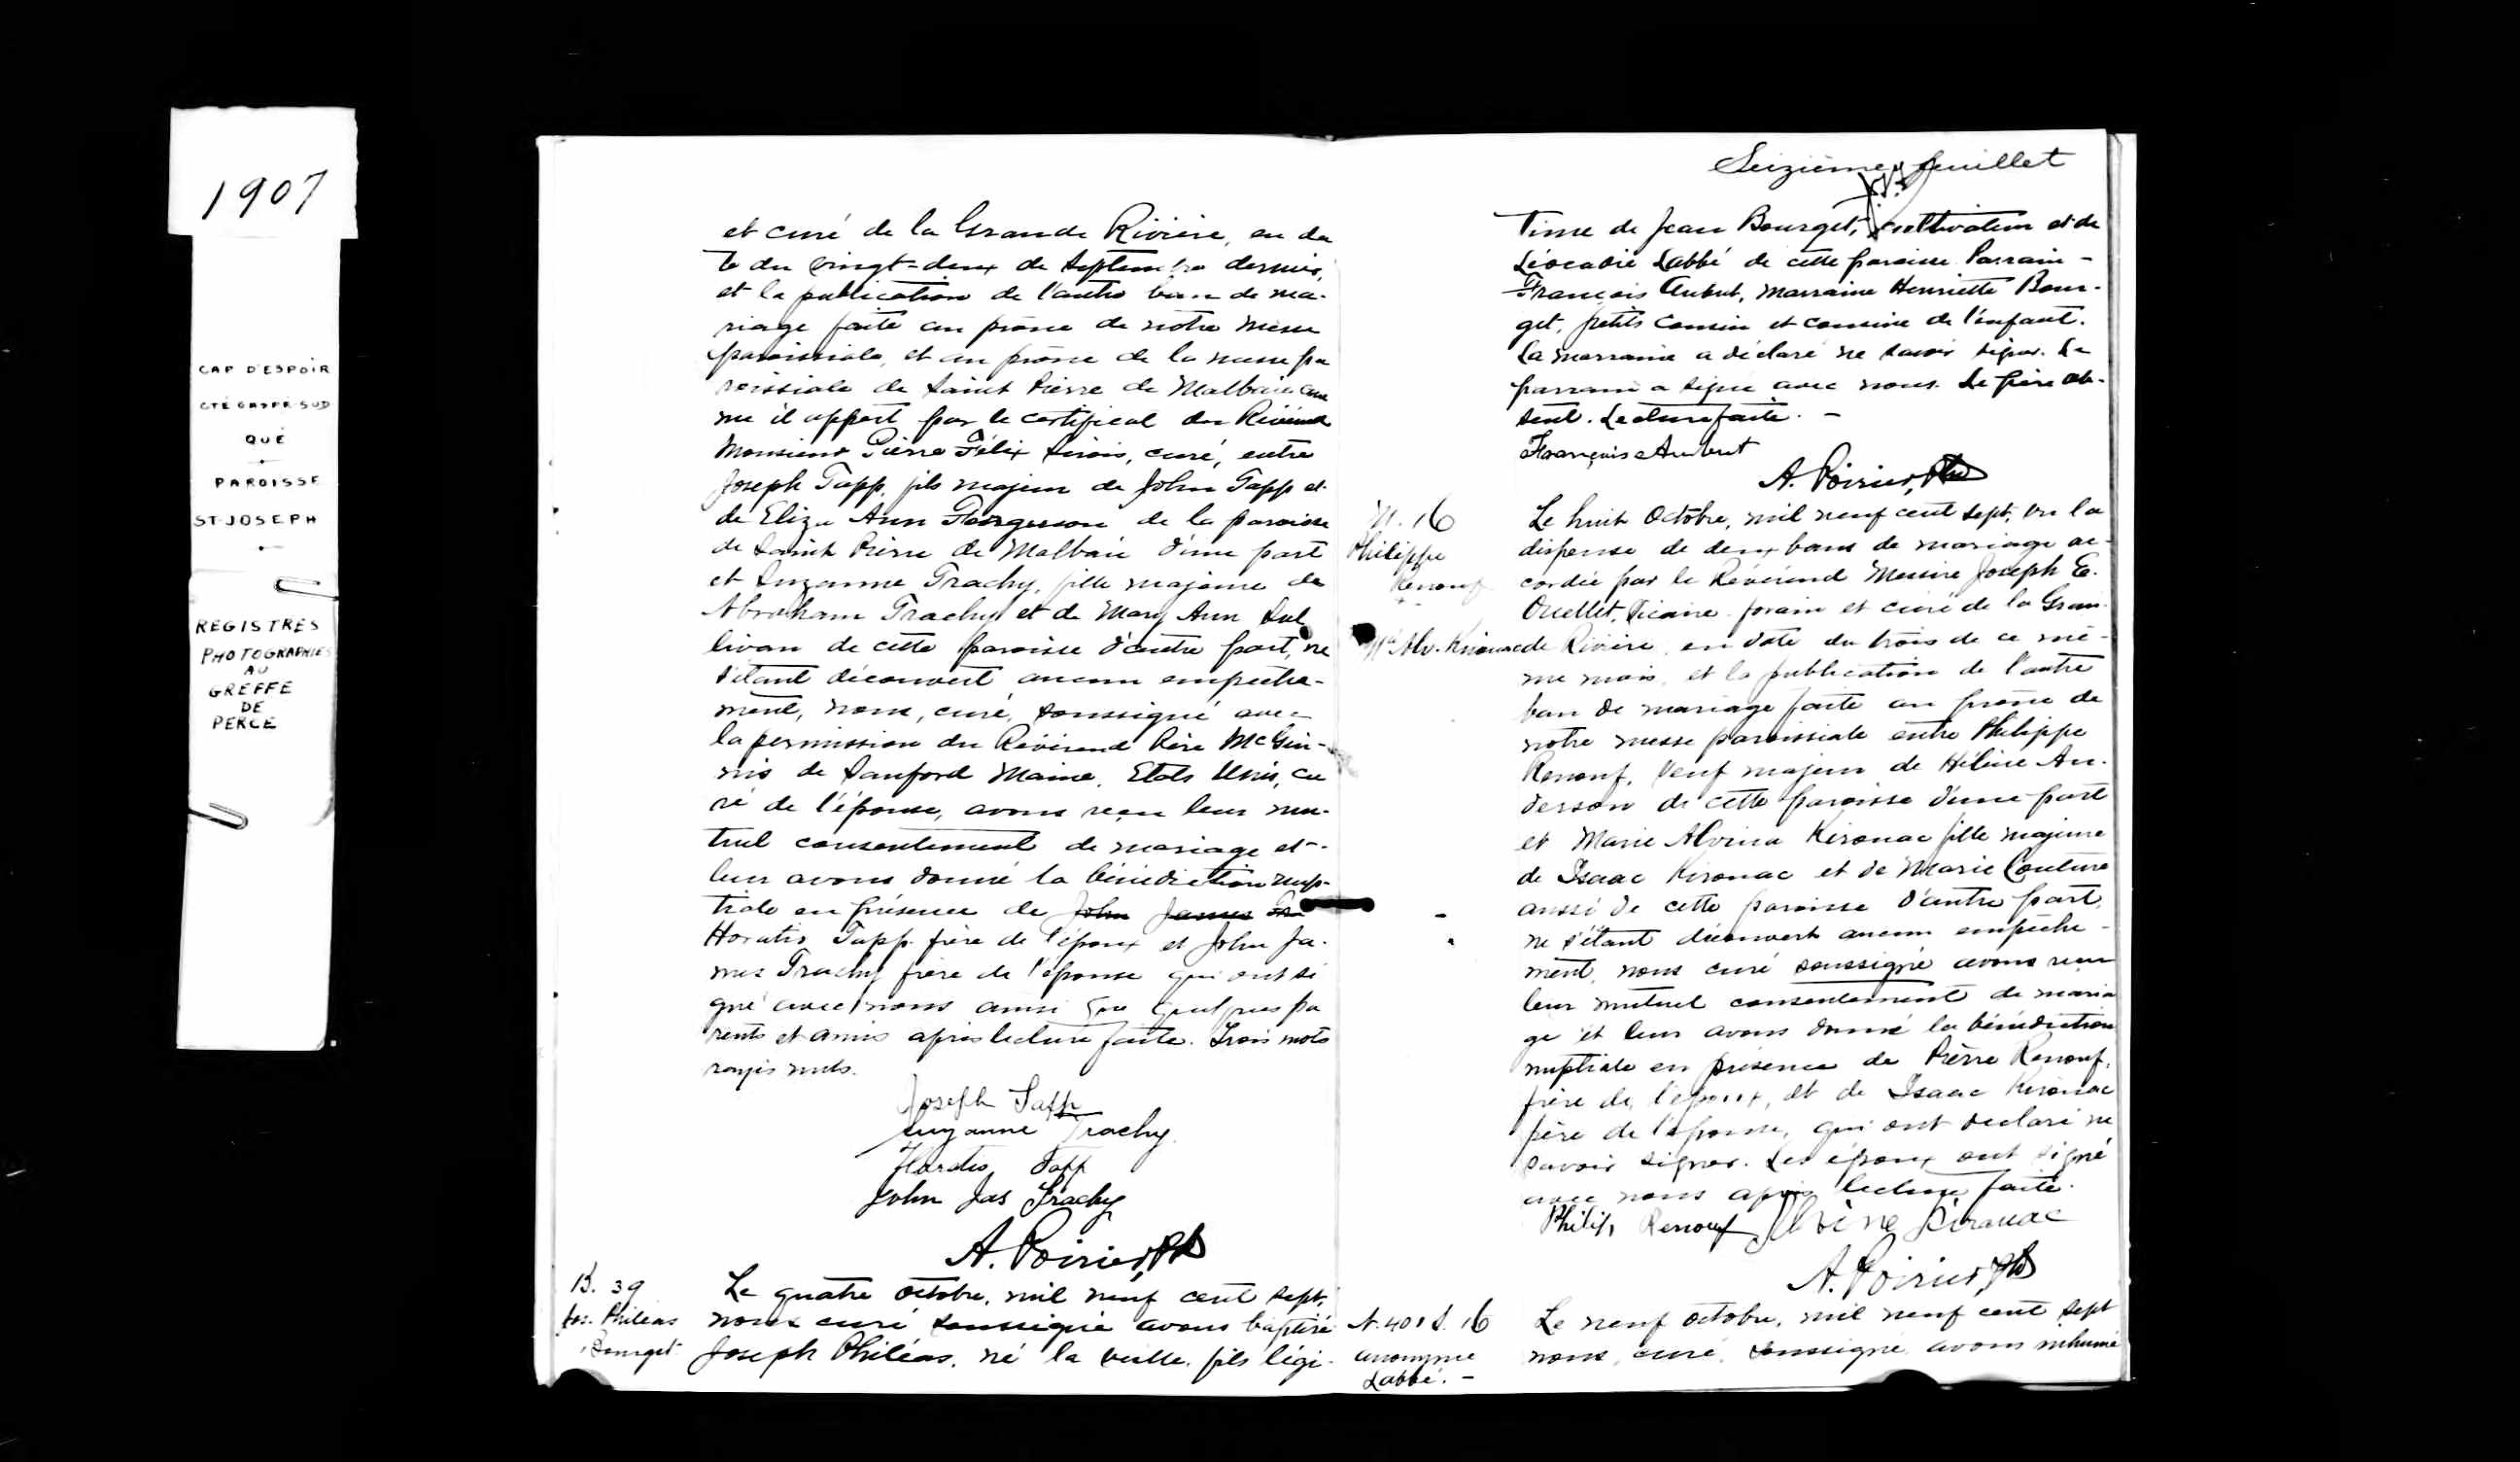 1907
CAP D'ESPOIR
CTÉ GASPÉ-SUD
QUÉ
PAROISSE
ST-JOSEPH
REGISTRES
PHOTOGRAPHIES
AU
GREFFE
DE
PERCE
et curé de la Grande Rivière, en da
te du vingt-deux de Septembre dernier,
et la publication de l'autre ban de ma-
riage faite au prône de notre messe
paroissiale, et au prône de la messe pa
roissiale de Saint Pierre de Malbaie com
me il appert par le certificat du Révérend
Monsieur Pierre Félix Sirois, curé, entre
Joseph Tapp, fils majeur de John Tapp et
de Eliza Ann Fergusson de la paroisse
de Saint Pierre de Malbaie d'une part
et Suzanne Trachy, fille majeure de
Abraham Trachy et de Mary Ann Sul
livan de cette paroisse d'autre part, ne
s'étant découvert aucun empêche-
ment, nous, curé, soussigné avec
la permission du Révérend Père McGin-
nis de Sanford Maine, Etats Unis, cu
ré de l'épouse, avons reçu leur mu-
tuel consentement de mariage et
leur avons donné la bénédiction nup-
tiale en présence de John James Tra
Horatio Tapp frère de l'époux et John Ja-
mes Trachy frère de l'épouse qui ont si
gné avec nous ainsi que quelques pa
rents et amis après lecture faite. Trois mots
rayés nuls.
Joseph Tapp
Suzanne Trachy
Horatio Tapp
John Jas Trachy
A. Poirier, Ptre
B. 39
Jos. Philéas
Bourget
Le quatre octobre, mil neuf cent sept,
nous curé soussigné avons baptisé
Joseph Philéas, né la veille, fils légi-
Seizième feuillet
time de Jean Bourget, cultivateur et de
Léocadie Labbé de cette paroisse Parrain -
François Aubut, marraine Henriette Bour-
get, petits cousin et cousine de l'enfant.
La marraine a déclaré ne savoir signer. Le
parrain a signé avec nous. Le père ab-
sent. Lecture faite. -
François Aubut
A. Poirier, Ptre
M. 16
Philippe
Renouf
&
Mie Alv. Kirouac
Le huit Octobre, mil neuf cent sept, vu la
dispense de deux bans de mariage ac-
cordée par le Révérend Messire Joseph E.
Ouellet, Vicaire forain et curé de la Gran-
de Rivière, en date du trois de ce mê-
me mois, et la publication de l'autre
ban de mariage faite au prône de
notre messe paroissiale entre Philippe
Renouf, veuf majeur de Hélène An-
derson de cette paroisse d'une part
et Marie Alvina Kirouac fille majeure
de Isaac Kirouac et de Marie Couture
aussi de cette paroisse d'autre part,
ne s'étant découvert aucun empêche-
ment, nous curé soussigné avons reçu
leur mutuel consentement de maria
ge et leur avons donné la bénédiction
nuptiale en présence de Pierre Renouf,
frère de l'époux, et de Isaac Kirouac
père de l'épouse, qui ont déclaré ne
savoir signer. Les époux ont signé
avec nous après lecture faite.
Philip Renouf Alvine Kirouac
A. Poirier Ptre
N. 40 & S. 16
anonyme
Labbé. -
Le neuf octobre, mil neuf cent sept
nous, curé, soussigné avons inhumé